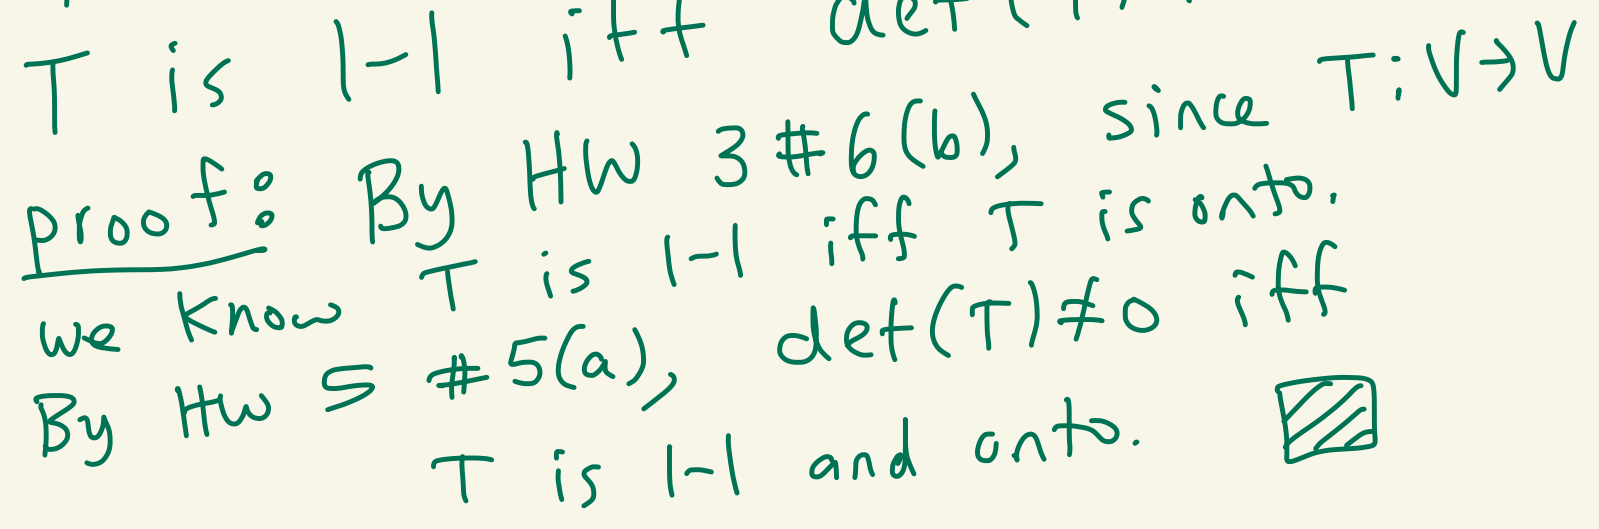 T is 1-1 iff det(T)
proof: By HW 3 #6(b), since T:V→V
we know T is 1-1 iff T is onto.
By HW 5 #5(a), det(T)≠0 iff
T is 1-1 and onto.